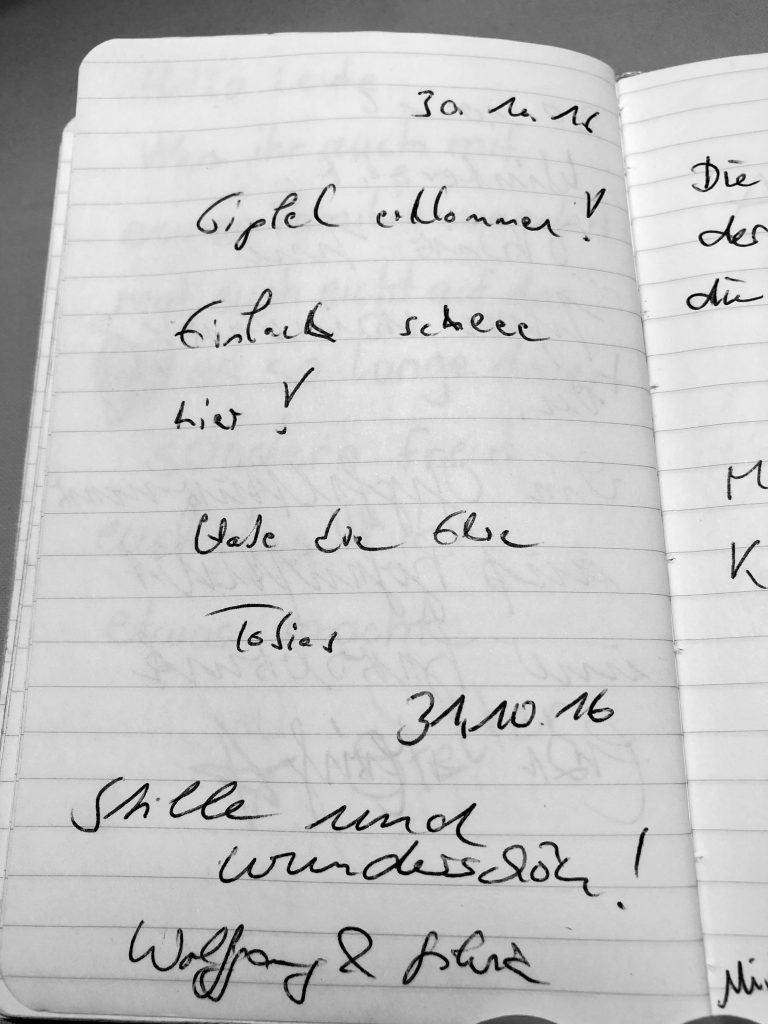 30. 10. 16
Gipfel erklommen!
Einfach schee
hier!
Tobias
31.10.16
Stille und
wunderschön!
Wolfgang &
Die
der
die
M
K
Mi